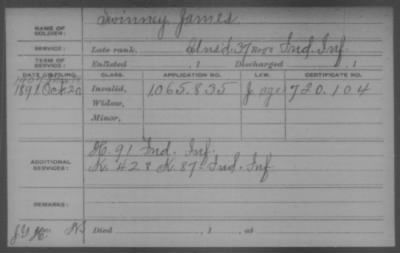 NAME OF SOLDIER: Swinney James
SERVICE: Late rank, Unsd. 37 Reg't Ind. Inf.
TERM OF SERVICE: Enlisted , 1 Discharged , 1
DATE OF FILING. CLASS. APPLICATION NO. LAW. CERTIFICATE NO.
1891 Oct 20 Invalid, 1065.835 J 720.104
Widow,
Minor,
ADDITIONAL SERVICES: H. 91 Ind. Inf.
K. 42 & K. 87. Ind. Inf.
REMARKS:
Died , 1 , at